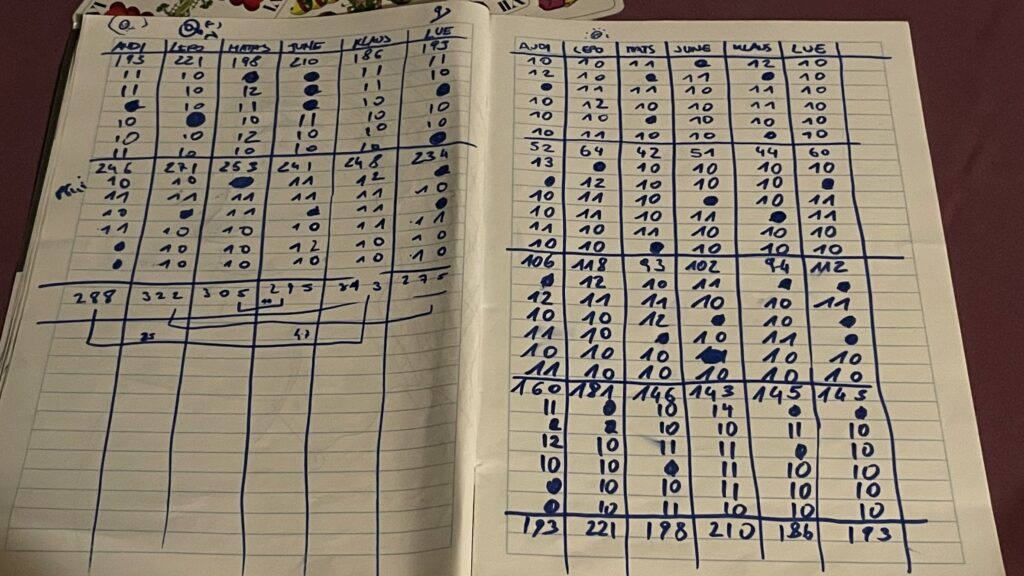 ANDI LEPO MATTS JUNE KLAUS LUE
193 221 198 210 186 193
11 10 ● ● 11 11
11 10 12 ● 11 10
● 10 11 ● 11 ●
10 ● 10 11 10 10
10 10 12 10 10 10
11 10 10 10 10 ●
246 271 253 241 248 234
10 10 ● 11 12 ●
11 10 11 11 11 10
10 ● 11 ● 11 ●
11 10 10 10 11 11
● 10 10 12 10 10
● 10 10 10 10 10
288 322 305 295 313 275
ANDI LEPO MATS JUNE KLAUS LUE
10 10 11 ● 12 10
12 10 ● 11 ● 10
● 11 11 10 11 10
10 12 10 10 11 10
10 10 ● 10 10 10
10 11 10 10 ● 10
52 64 42 51 44 60
13 ● 10 10 10 10
● 12 10 10 10 ●
10 11 10 ● 10 11
10 11 10 11 ● 11
10 10 11 10 10 10
10 10 ● 10 10 10
106 118 93 102 94 112
● 12 10 11 ● ●
12 11 11 10 10 11
10 10 12 ● 10 ●
11 10 ● 10 11 ●
10 10 10 ● 10 10
11 10 10 10 10 10
160 181 146 143 145 143
11 ● 10 14 ● ●
10 10 11 10
12 10 11 11 ● 10
10 10 ● 11 10 10
● 10 10 11 10 10
● 10 11 10 10 10
193 221 198 210 186 193